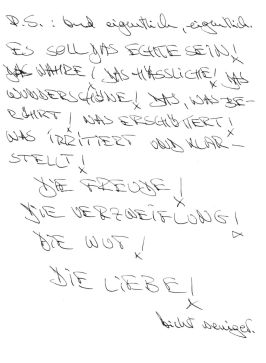 P.S.: Und eigentlich, eigentlich.
ES SOLL DAS ECHTE SEIN!
DAS WAHRE! DAS HÄSSLICHE! DAS
WUNDERSCHÖNE! DAS, WAS BE-
RÜHRT! WAS ERSCHÜTTERT!
WAS IRRITIERT UND KLAR-
STELLT!
DIE FREUDE!
DIE VERZWEIFLUNG!
DIE WUT!
DIE LIEBE!
Nicht weniger.